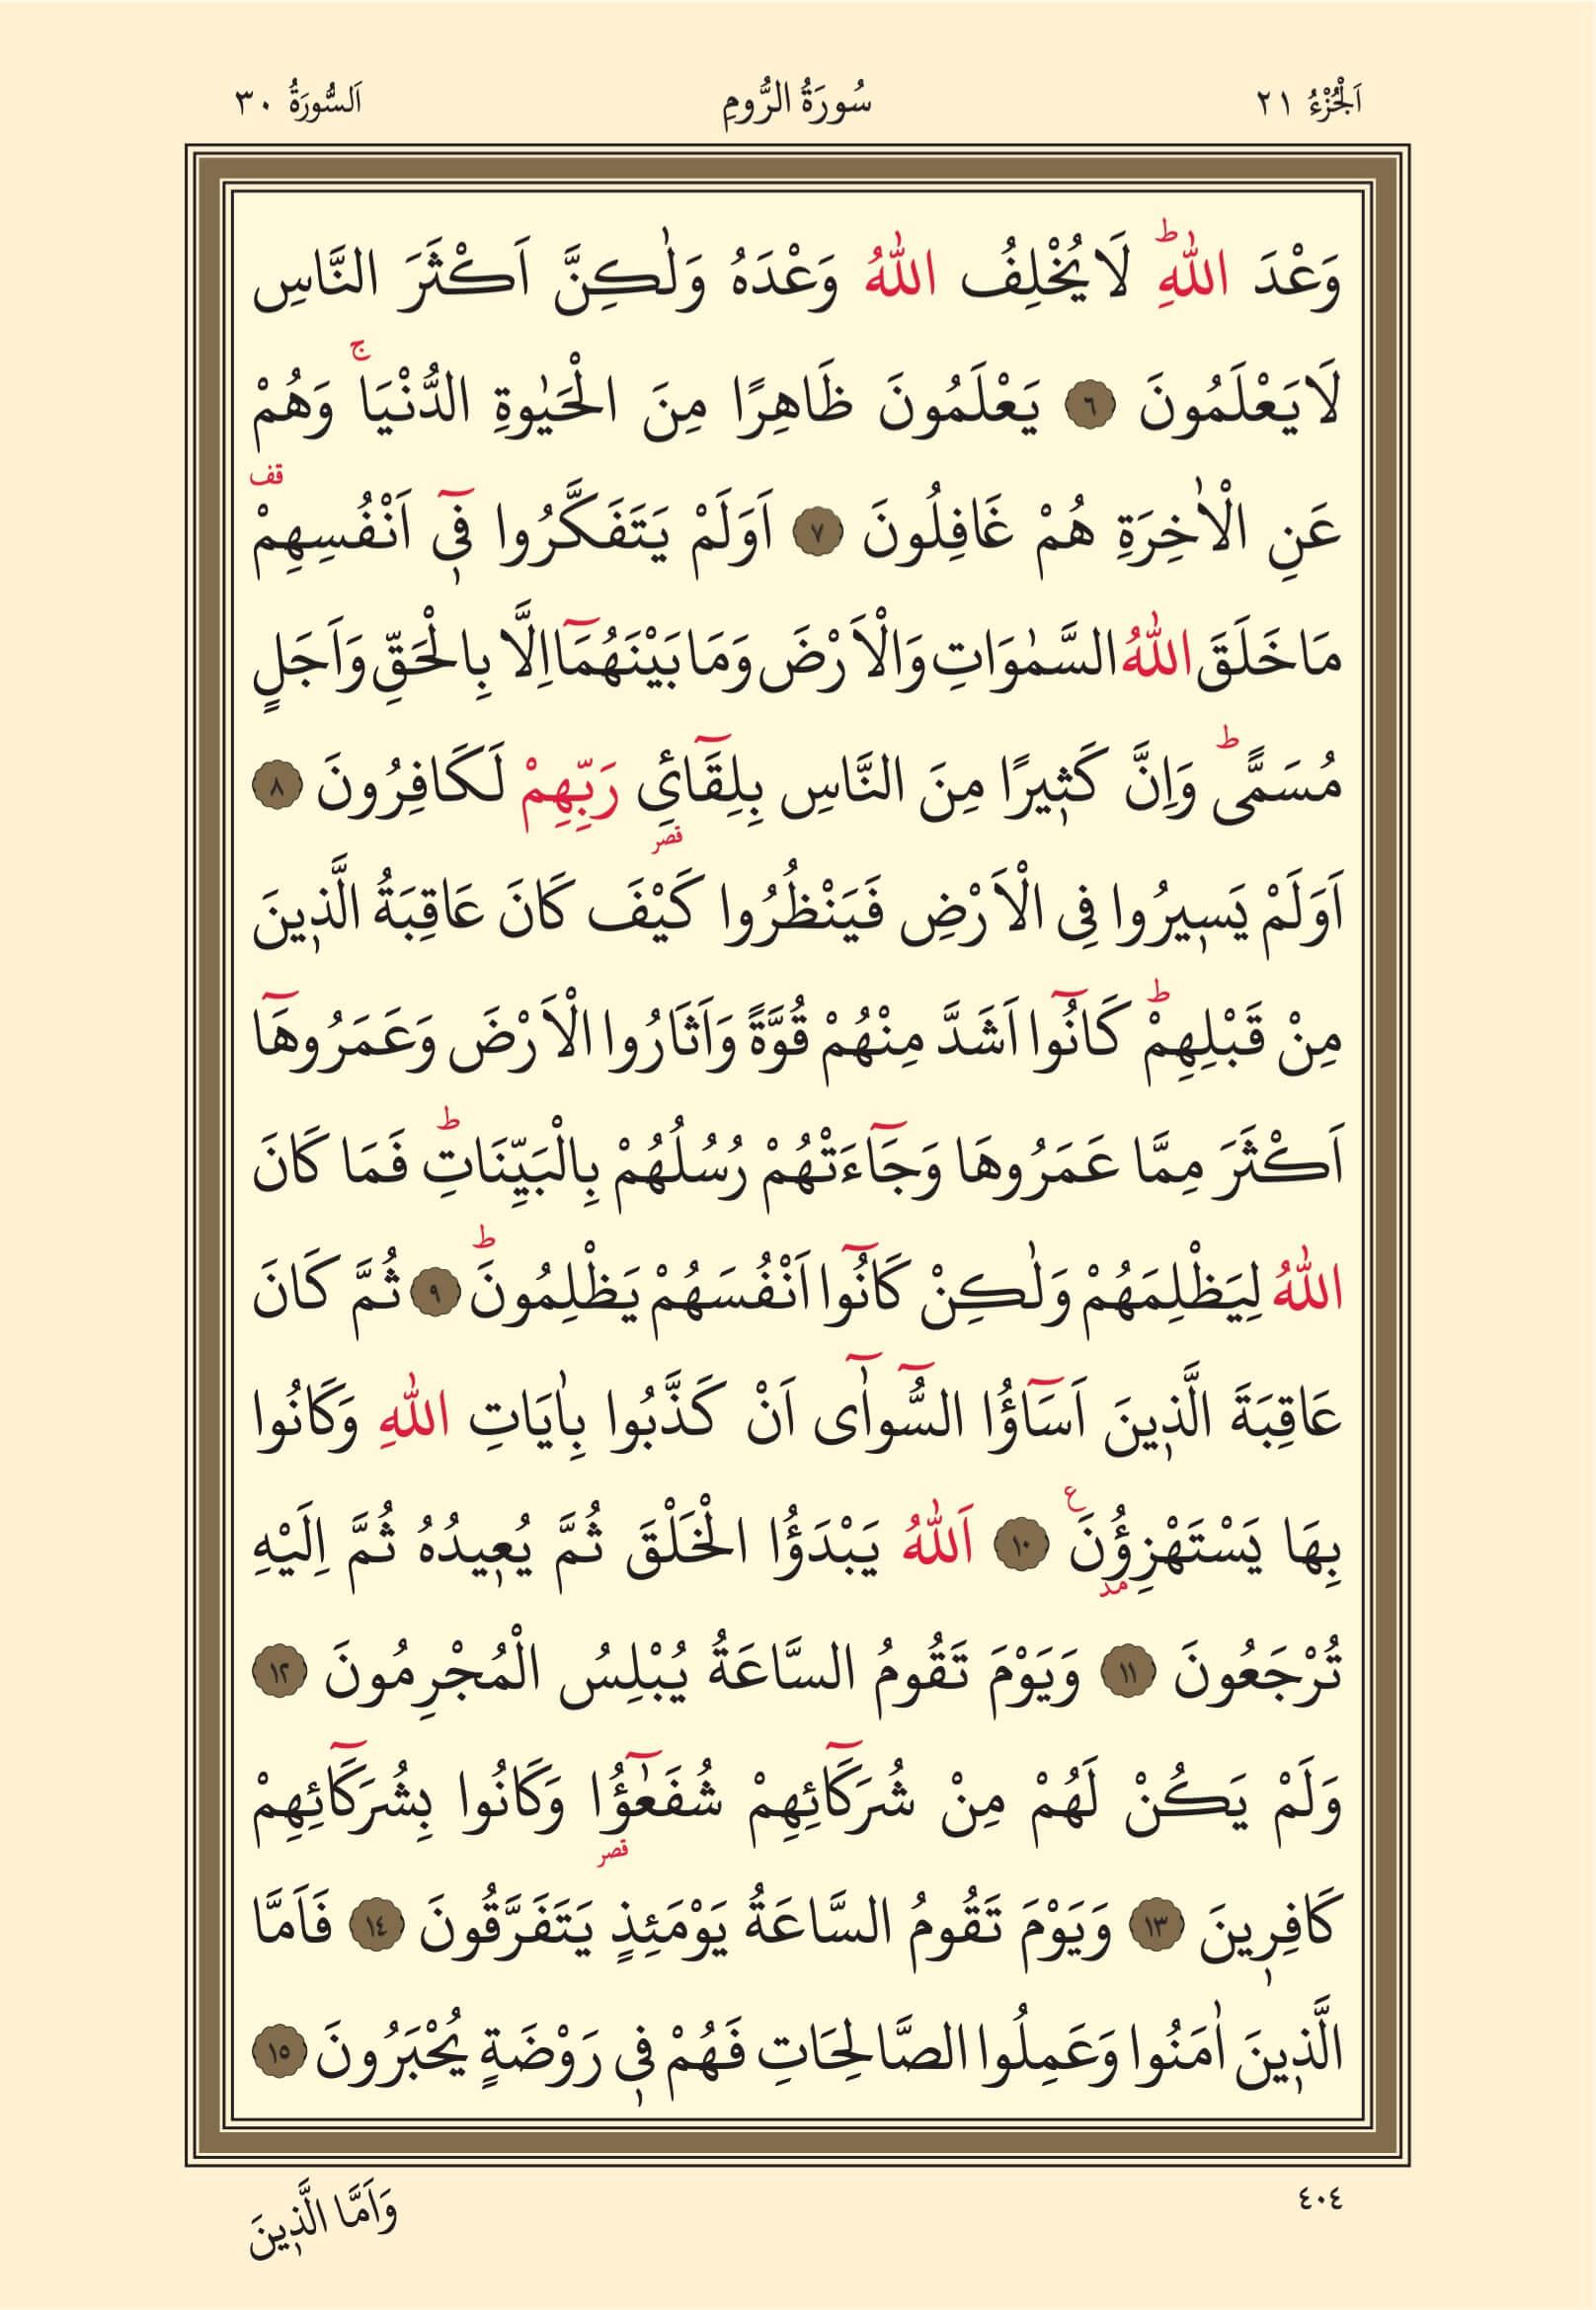 اَلْجُزْءُ ٢١ سُورَةُ الرُّومِ اَلسُّورَةُ ٣٠
وَعْدَ اللّٰهِۜ لَا يُخْلِفُ اللّٰهُ وَعْدَهُ وَلٰكِنَّ اَكْثَرَ النَّاسِ
لَا يَعْلَمُونَ ﴿٦﴾ يَعْلَمُونَ ظَاهِرًا مِنَ الْحَيٰوةِ الدُّنْيَاۚ وَهُمْ
عَنِ الْاٰخِرَةِ هُمْ غَافِلُونَ ﴿٧﴾ اَوَلَمْ يَتَفَكَّرُوا ف۪ٓي اَنْفُسِهِمْ قف
مَا خَلَقَ اللّٰهُ السَّمٰوَاتِ وَالْاَرْضَ وَمَا بَيْنَهُمَٓا اِلَّا بِالْحَقِّ وَاَجَلٍ
مُسَمًّىۜ وَاِنَّ كَث۪يرًا مِنَ النَّاسِ بِلِقَٓائِ۬ قصر رَبِّهِمْ لَكَافِرُونَ ﴿٨﴾
اَوَلَمْ يَس۪يرُوا فِي الْاَرْضِ فَيَنْظُرُوا كَيْفَ كَانَ عَاقِبَةُ الَّذ۪ينَ
مِنْ قَبْلِهِمْۜ كَانُٓوا اَشَدَّ مِنْهُمْ قُوَّةً وَاَثَارُوا الْاَرْضَ وَعَمَرُوهَٓا
اَكْثَرَ مِمَّا عَمَرُوهَا وَجَٓاءَتْهُمْ رُسُلُهُمْ بِالْبَيِّنَاتِۜ فَمَا كَانَ
اللّٰهُ لِيَظْلِمَهُمْ وَلٰكِنْ كَانُٓوا اَنْفُسَهُمْ يَظْلِمُونَۜ ﴿٩﴾ ثُمَّ كَانَ
عَاقِبَةَ الَّذ۪ينَ اَسَٓاؤُا السُّٓوآٰى اَنْ كَذَّبُوا بِاٰيَاتِ اللّٰهِ وَكَانُوا
بِهَا يَسْتَهْزِؤُ۫نَ مد ع ﴿١٠﴾ اَللّٰهُ يَبْدَؤُا الْخَلْقَ ثُمَّ يُع۪يدُهُ ثُمَّ اِلَيْهِ
تُرْجَعُونَ ﴿١١﴾ وَيَوْمَ تَقُومُ السَّاعَةُ يُبْلِسُ الْمُجْرِمُونَ ﴿١٢﴾
وَلَمْ يَكُنْ لَهُمْ مِنْ شُرَكَٓائِهِمْ شُفَعٰٓؤُ۬ا قصر وَكَانُوا بِشُرَكَٓائِهِمْ
كَافِر۪ينَ ﴿١٣﴾ وَيَوْمَ تَقُومُ السَّاعَةُ يَوْمَئِذٍ يَتَفَرَّقُونَ ﴿١٤﴾ فَاَمَّا
الَّذ۪ينَ اٰمَنُوا وَعَمِلُوا الصَّالِحَاتِ فَهُمْ ف۪ي رَوْضَةٍ يُحْبَرُونَ ﴿١٥﴾
٤٠٤ وَاَمَّا الَّذ۪ينَ